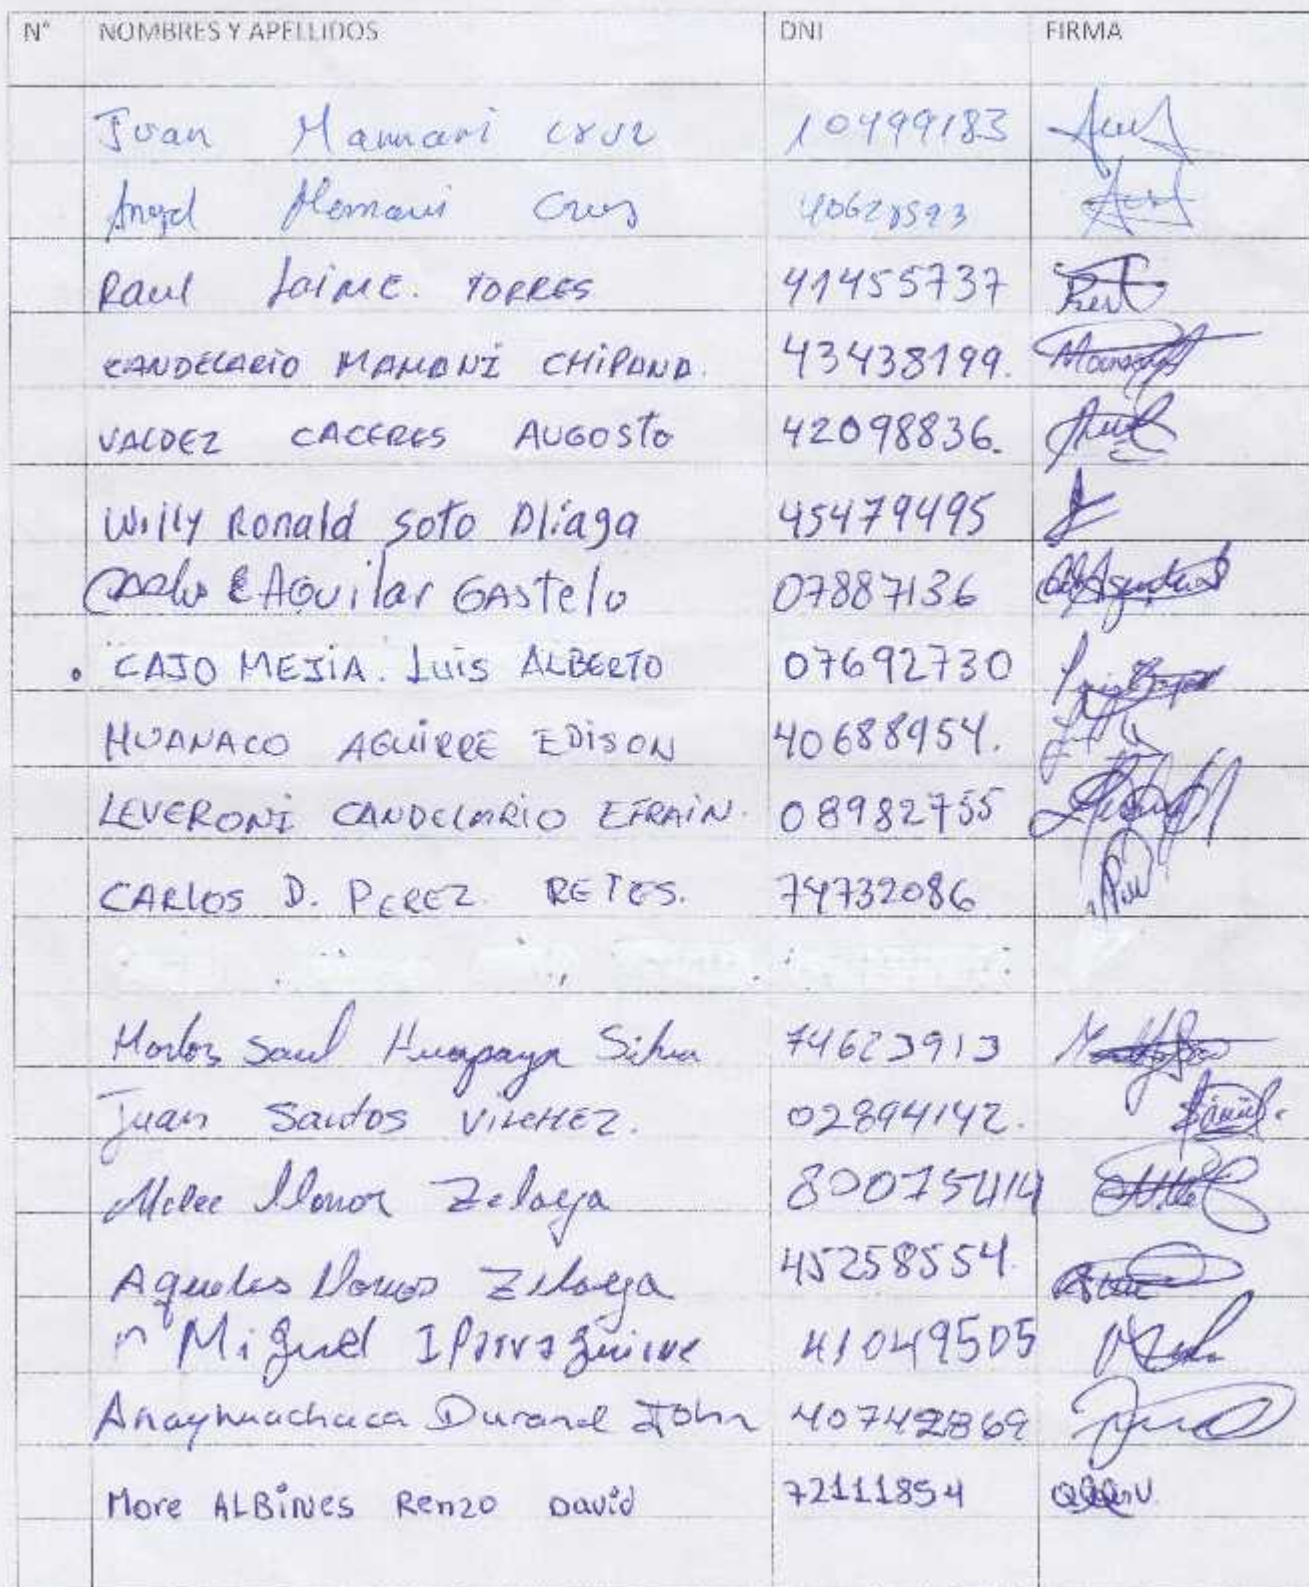 N° NOMBRES Y APELLIDOS DNI FIRMA
Juan Mamani Cruz 10499183
Angel Mamani Cruz 40628593
Raul Jaime. TORRES 41455737
CANDELARIO MAMANI CHIPANA. 43438199.
VALDEZ CACERES AUGOSTO 42098836.
Willy Ronald Soto Aliaga 45479495
Carlos E Aguilar GAStelo 07887136
CAJO MEJIA. Luis ALBERTO 07692730
HUANACO AGUIRRE EDISON 40688954.
LEVERONI CANDELARIO EFRAIN. 08982755
CARLOS D. PEREZ RETES. 74732086
Saul Huapaya Silva 74623913
Juan Santos VILCHEZ. 02894142.
Zelaya 80075414
Zelaya 45258554.
Miguel IParraguirre 41049505
Anayhuachaca Durand John 40742869
More ALBINES Renzo David 72111854